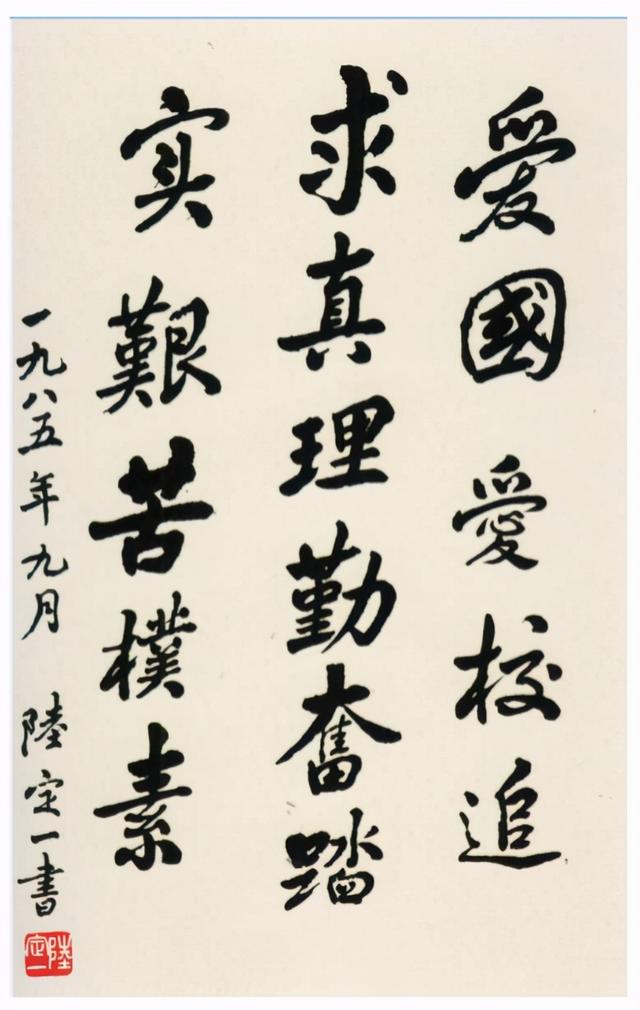 爱國愛校追
求真理勤奮踏
实艱苦樸素
一九八五年九月 陸定一書
陸定一